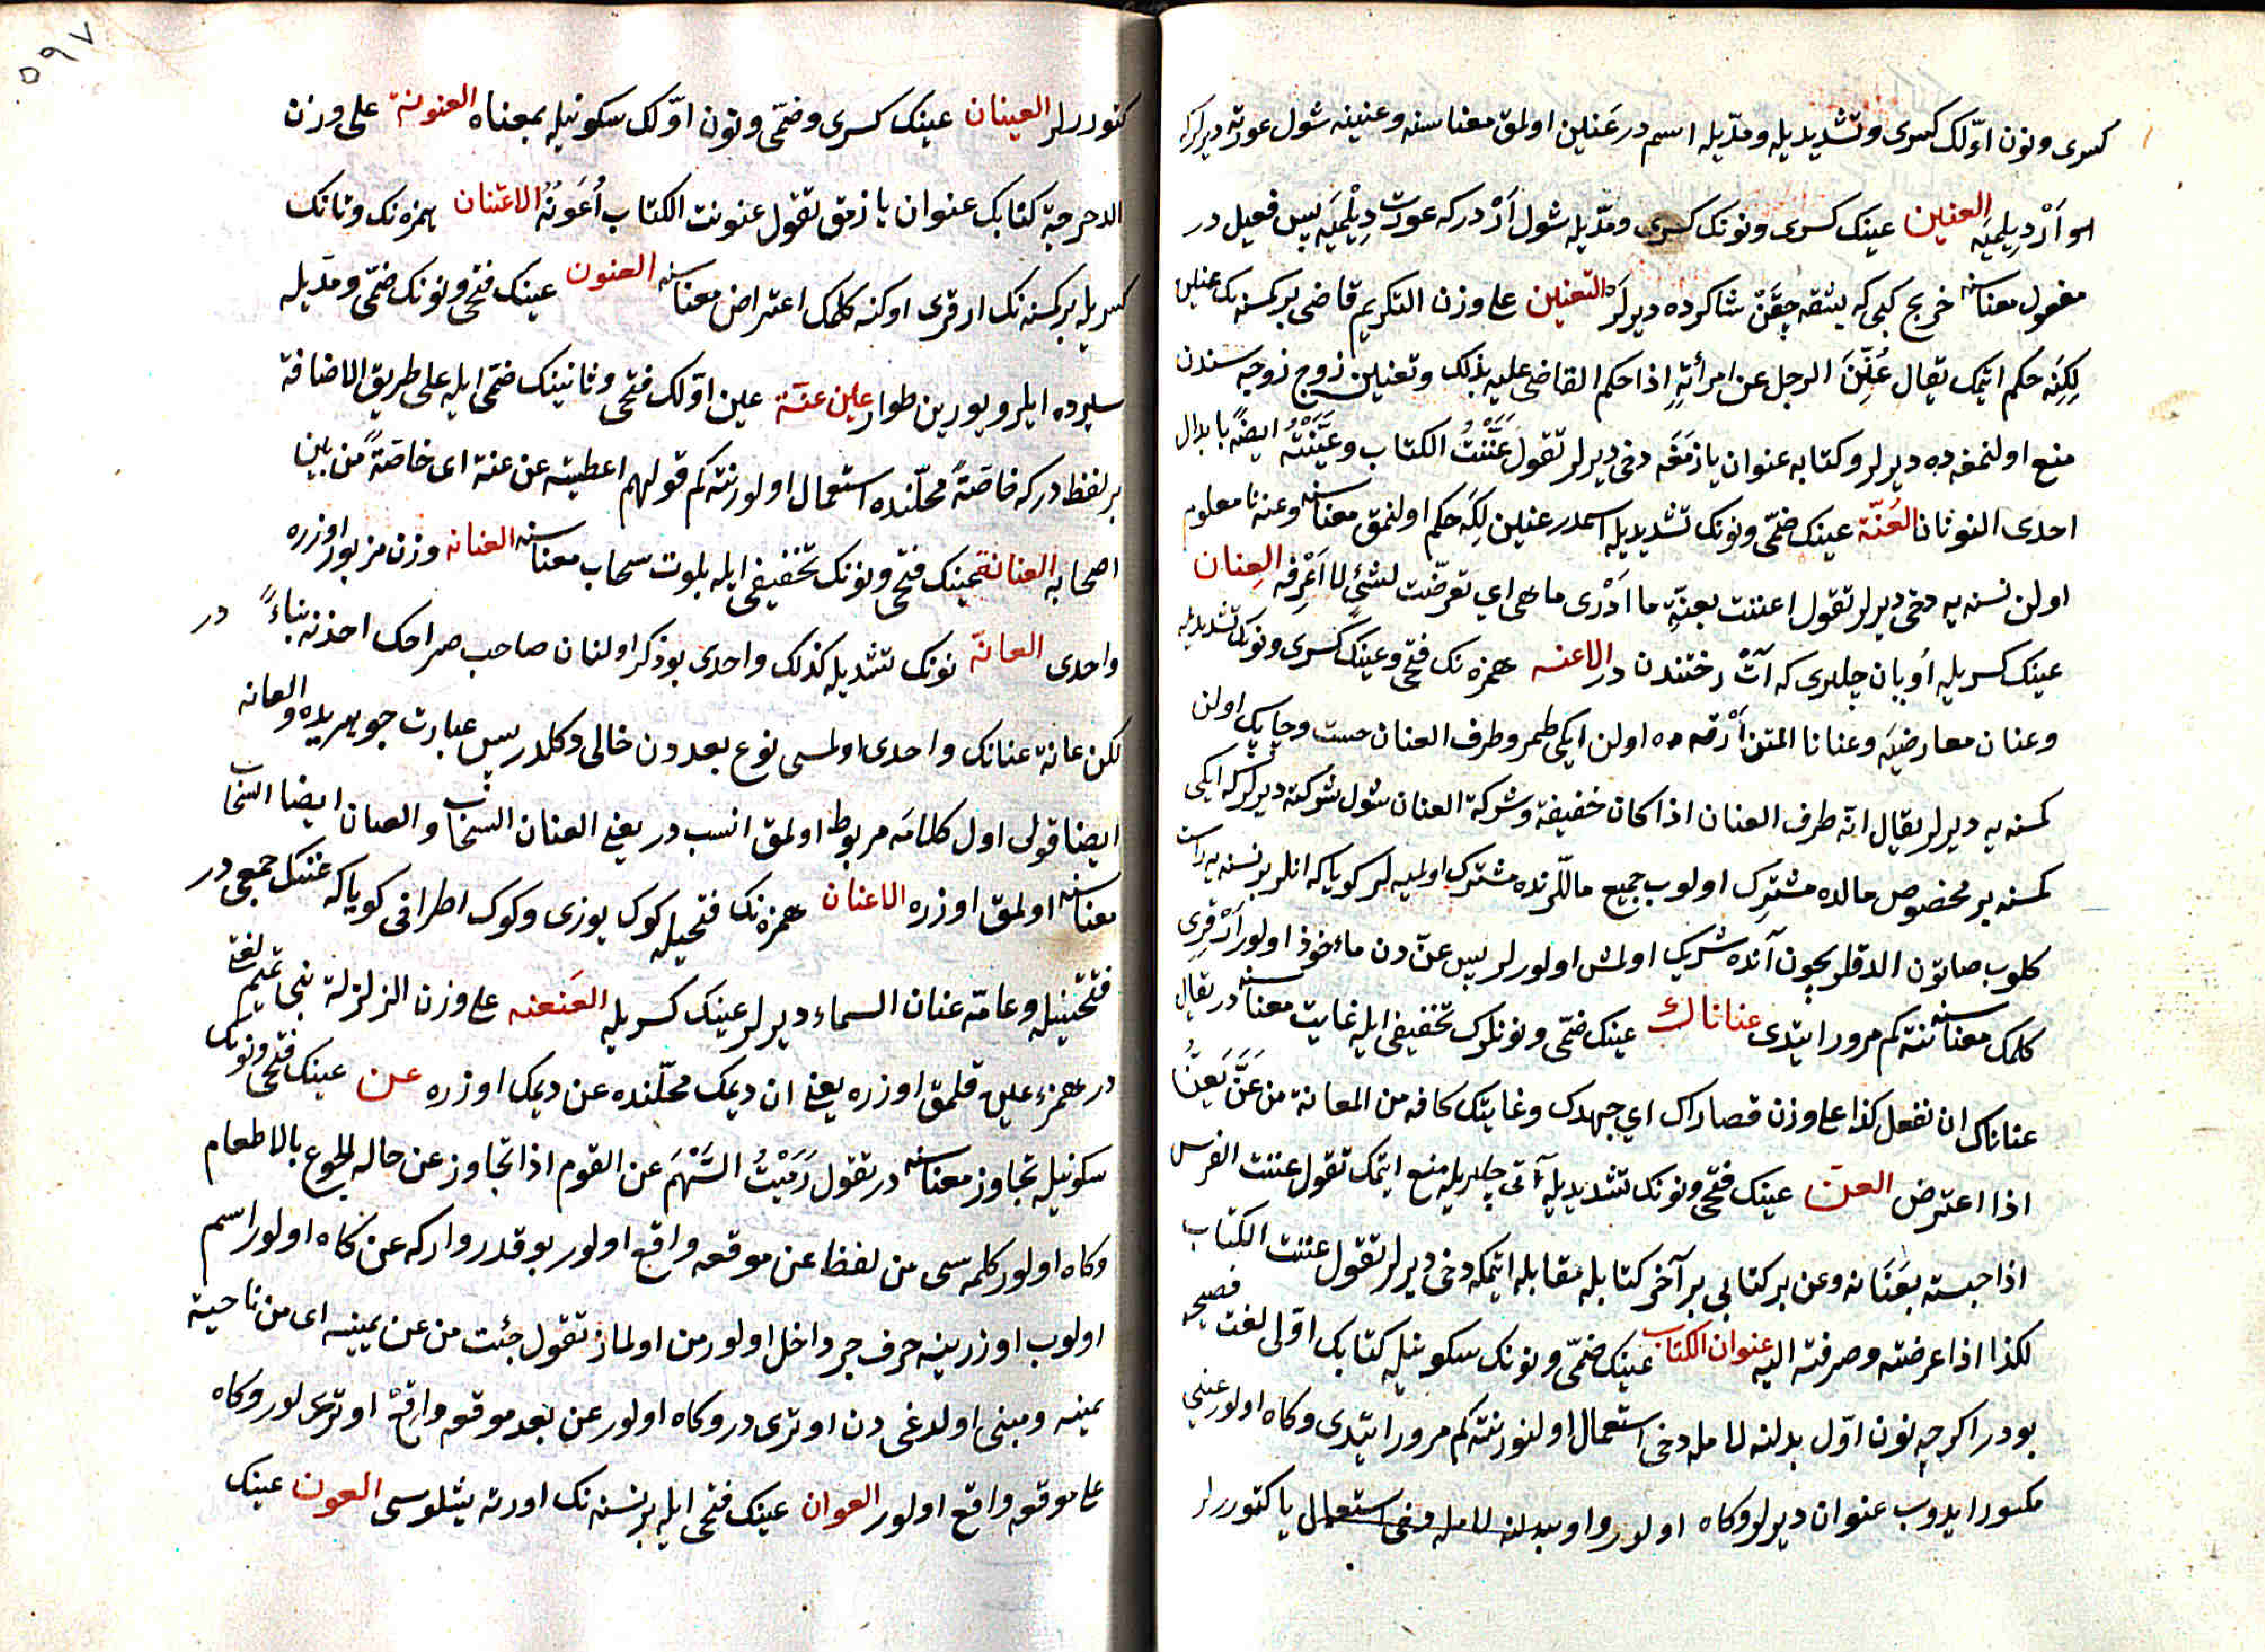 كسرى ونون اوّلك كسرى وتشديديله ومدّيله اسم در عَنين اولمق معناسنه وعنينه شول عورته ديرلركه
اوا اَرْ دِيلميَه العنين عينك كسرى ونونك كسرى ومدّيله شول اَرْ دركه عورت دِيلْميَه پس فعيل در
مفعول معناسنه خريج كبى كه يشقه چقَنْ شاكرده ديرلَر التعنين على وزن التكريم قاضى بر كمسنه نك عنين
لِكِنه حكم اتمك يقال عُنِّنَ الرجل عن امرأته اذا حكم القاضى عليه بذلك وتعنين زوج زوجه سندن
منع اولنمغه ده ديرلر وكتابه عنوان يازمَغَه دخى ديرلر تقول عَنَّنْتُ الكتاب وعَنَّيْتُه ايضًا بابدال
احدى النونان العُنّة عينك ضمّى ونونك تشديديله اسمدر عنين لِكَه حكم اولنمق معناسنه وعنه نا معلوم
اولن نسنه يه دخى ديرلر تقول اعننت بعنّةٍ ما ادْرى ما هى اي تعرّضت لشئٍ لا اَعْرِفه العِنان
عينك كسريله اُويان چلبرى كه آتْ رختندن در الاعنه همزه نك فتحى وعينك كسرى ونونك تشديديله
وعنان معارضيَه وعنانا المتن اَرْقه ده اولن ايكى طمر وطرف العنان حست وچابك اولن
كمسنه يه ديرلر يقال انّه طرف العنان اذا كان خفيفة وشركة العنان شول شركته ديرلركه ايكى
كمسنه بر مخصوص مالده مشترك اولوب جميع ماللرنده مشترك اولميه لر كوياكه انلر بر نسنه يه راست
كلوب صاتون الدقلريچون آنده شريك اولمش اولورلر پس عنّ دن مأخوذ اولور اَرْقرِى
كلمك معناسنه نته كم مرور ايتدى عناناك عينك ضمّى ونونلرك تخفيفى ايله غايت معناسنه در يقال
عناناك ان تفعل كذا على وزن قصاراك اي جهدك وغايتك كافه من المعانة من عَنَّ يَعِنُّ
اذا اعترض العنّ عينك فتحى ونونك تشديديله آتى چلبريله منع ايتمك تقول عننت الفرس
اذا حبسته بِعَنَانه وعن بر كتابى بر آخر كتابله مقابله ايتمكه دخى ديرلر تقول عننت الكتاب
لكذا اذا عرضته وصرفته اليه عنوان الكتاب عينك ضمّى ونونك سكونيله كتابك اوّلى لغت فصيحه
بودر اكرچه نون اوّل بدلنه لامله دخى استعمال اولنور نته كم مرور ايتدى وكاه اولور عينى
مكسور ايدوب عنوان ديرلر وكاه اولور واو بدلنه لامله دخى استعمال يا كتوررلر
٥٩٧
كتوررلر العينان عينك كسرى وضمّى ونون اوّلك سكونيله بمعناه العنونة على وزن
الدحرجة كتابك عنوان يازمق تقول عنونت الكتاب اُعَونُهُ الاعتنان همزه نك وتانك
كسريله بر كمسنه نك ارقرى اوكنه كلمك اعتراض معناسنه العنون عينك فتحى ونونك ضمّى ومدّيله
سيرده ايلرو يورين طوار عين عنّة عين اوّلك فتحى وثانينك ضمّى ايله على طريق الاضافة
بر لفظدر كه خاصّةً محلّنده استعمال اولور نته كم قولهم اعطيته عين عنة اى خاصّةً من بين
اصحابه العنانة عينك فتحى ونونك تخفيفى ايله بلوت سحاب معناسنه العنانه وزن مزبور اوزره
واحدى العانّة نونك تشديديله كذلك واحدى بو ذكر اولنان صاحب صراحك اخذنه بناءً در
لكن عانة عنانك واحدى اولمسى نوع بعددن خالى دكلدر پس عبارت جوهريده والعانه
ايضا قولى اول كلامَه مربوط اولمق انسب در يعنى العنان السحاب والعنان ايضا السحاب
معناسنه اولمق اوزره الاعنان همزه نك فتحيله كوك يوزى وكوك اطرافى كوياكه عننك جمعى در
فتحتينيله وعامّه عنان السماء ديرلر عينك كسريله العَنعنه على وزن الزلزلة بنى تميم لغتى
در همزه عين قلمق اوزره يعنى ان ديمك محلّنده عن ديمك اوزره عن عينك فتحى ونونك
سكونيله تجاوز معناسنه در تقول رَمَيْتُ السَّهْمَ عن القوم اذا تجاوز عن حاله الجوع بالاطعام
وكاه اولور كلمه سى من لفظا عن موقعه واقع اولور بو قدر واركه عن كاه اولور اسم
اولوب اوزرينه حرف جر داخل اولور من اولماز تقول جئت من عن يمينه اى من ناحية
يمينه ومبنى اولدغى دن اوترى در وكاه اولور عن بعد موقعه واقعْ اوترى لور وكاه
على موقعه واقع اولور العوان عينك فتحى ايله بر نسنه نك اورته يشلوسى العون عينك